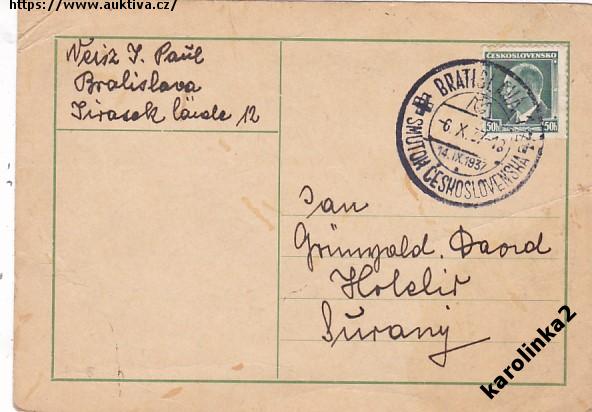 https://www.auktiva.cz/
Weisz J. Paul
Bratislava
Jirasek lände 12
ČESKOSLOVENSKO
50h 50h
BRATISLAVA
6.X.
14.IX.1937
SMÚTOK ČESKOSLOVENSKA
Pan
Grünwald David
Hotelir
Šurany
karolinka2